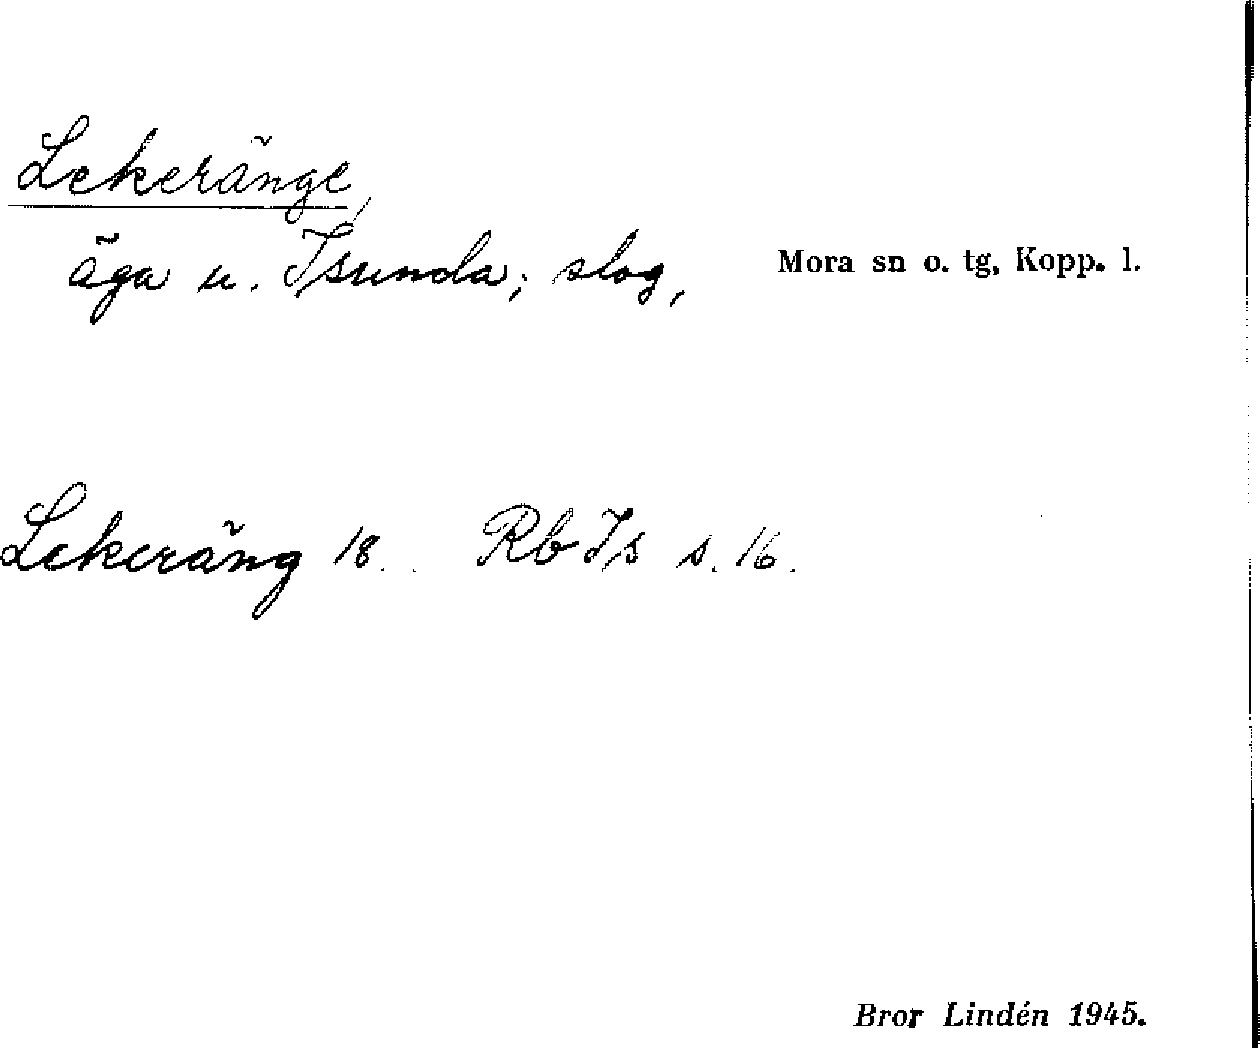 Lekeränge,
äga u. Isunda; slog,
Mora sn o. tg, Kopp. l.
Lekeräng 18. . Rb Is s. 16.
Bror Lindén 1945.